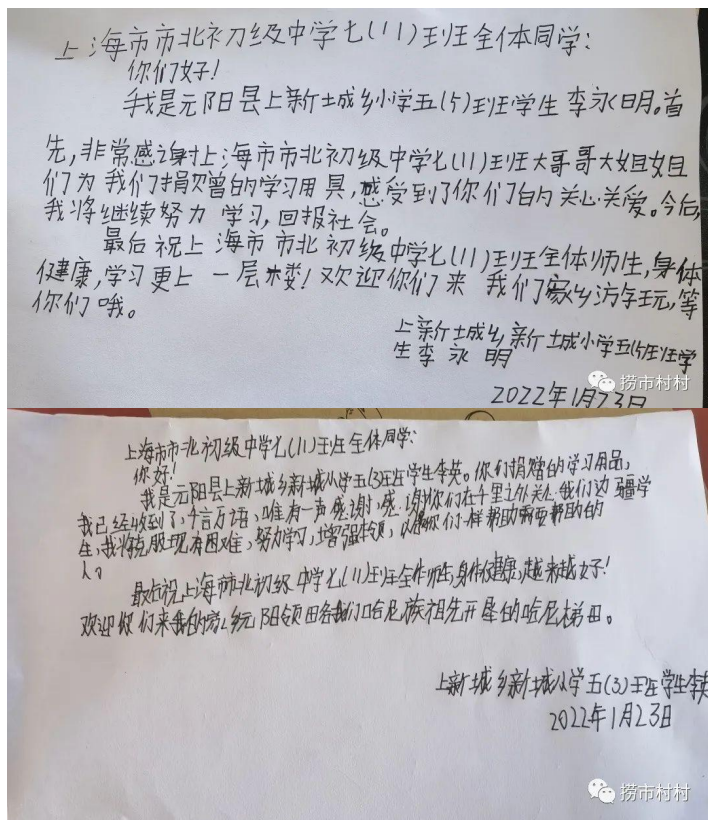 上海市市北初级中学七(11)班全体同学:
你们好!
我是元阳县上新城乡小学五(5)班学生 李永明。首
先,非常感谢上海市市北初级中学七(11)班大哥哥大姐姐
们为我们捐赠的学习用具,感受到了你们的关心关爱。今后,
我将继续努力学习,回报社会。
最后祝上海市市北初级中学七(11)班全体师生,身体
健康,学习更上一层楼!欢迎你们来我们家乡访玩,等
你们哦。
上新城乡新城小学五(5)班学
生李永明
2022年1月23日
捞市村村
上海市市北初级中学七(11)班全体同学:
你好!
我是元阳县上新城乡新城小学五(3)班学生李英。你们捐赠的学习用品,
我已经收到了,千言万语,唯有一声感谢,感谢你们在千里之外关心我们边疆学
生,我将克服现有困难,努力学习,增强本领,以像你们一样帮助需要帮助的
人。
最后祝上海市市北初级中学七(11)班全体师生,身体健康,越来越好!
欢迎你们来我的家乡元阳领略我们哈尼族祖先开垦的哈尼梯田。
上新城乡新城小学五(3)班学生李英
2022年1月23日
捞市村村